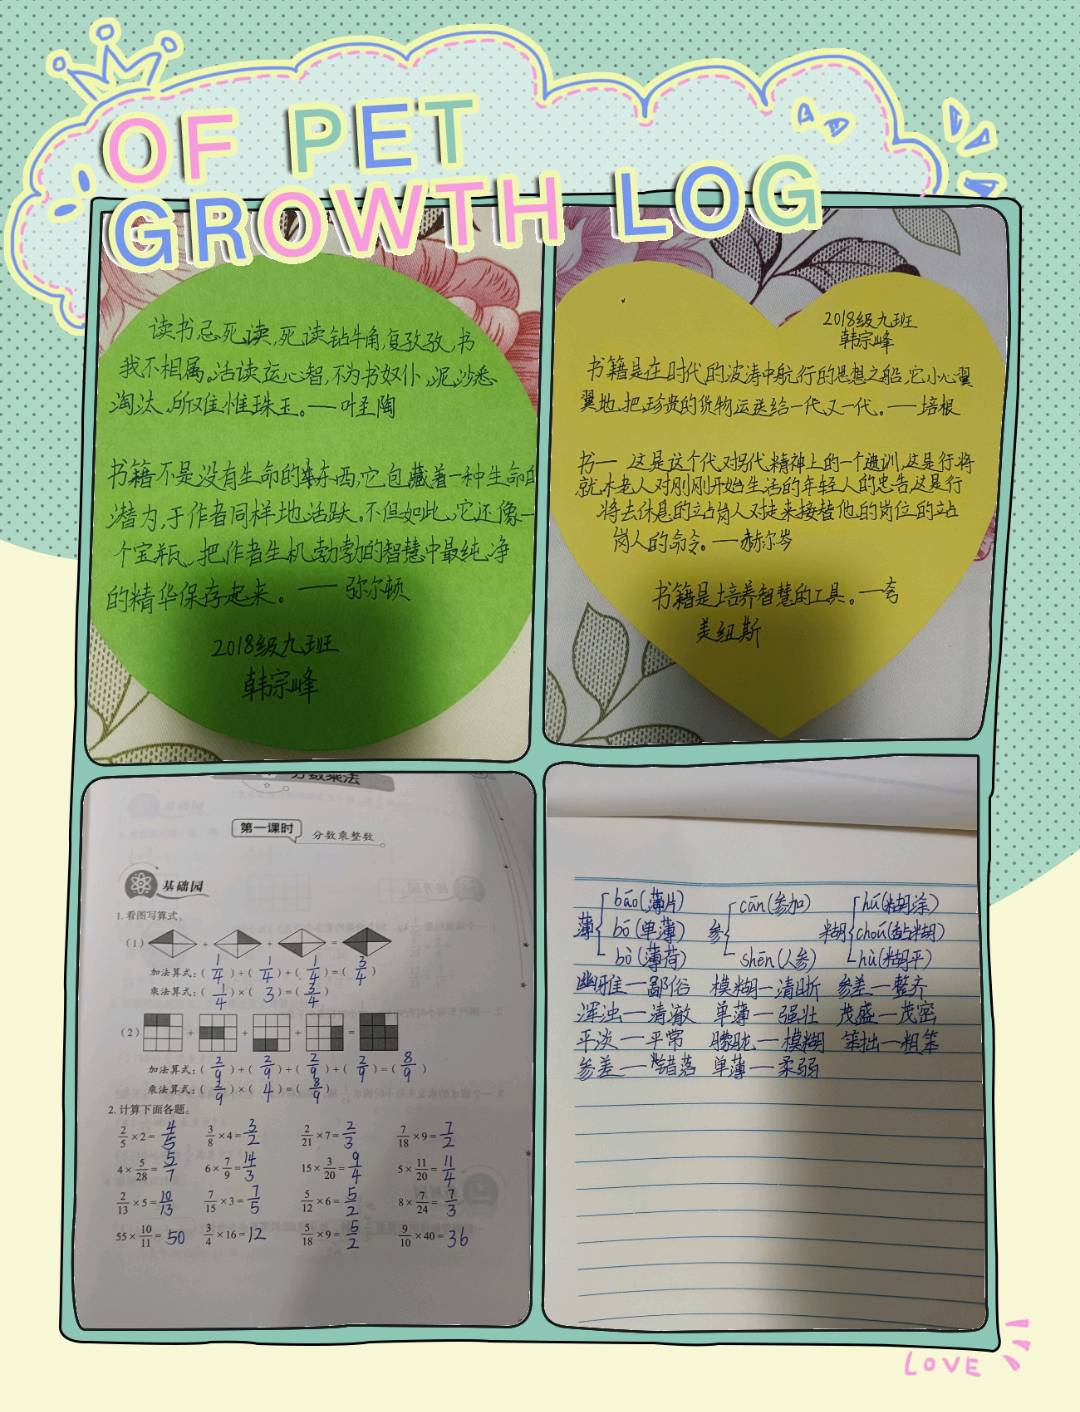 OF PET
GROWTH LOG
读书忌死读,死读钻牛角,矻矻复孜孜,书
我不相属。活读运心智,不为书奴仆,泥沙悉
淘汰,所取惟珠玉。——叶圣陶
书籍不是没有生命的东西,它包藏着一种生命的
潜力,于作者同样地活跃。不但如此,它还像一
个宝瓶,把作者生机勃勃的智慧中最纯净
的精华保存起来。——弥尔顿
2018级九班
韩宗峰
2018级九班
韩宗峰
书籍是在时代的波涛中航行的思想之船,它小心翼
翼地把珍贵的货物运送给一代又一代。——培根
书——这是这个代对另代精神上的一个遗训,这是行将
就木老人对刚刚开始生活的年轻人的忠告,这是行
将去休息的站岗人对走来接替他的岗位的站
岗人的命令。——赫尔岑
书籍是培养智慧的工具。——夸
美纽斯
分数乘法
第一课时 分数乘整数
基础园
1.看图写算式。
(1) + + =
加法算式:( 1/4 )+( 1/4 )+( 1/4 )=( 3/4 )
乘法算式:( 1/4 )×( 3 )=( 3/4 )
(2) + + + =
加法算式:( 2/9 )+( 2/9 )+( 2/9 )+( 2/9 )=( 8/9 )
乘法算式:( 2/9 )×( 4 )=( 8/9 )
2.计算下面各题。
2/5×2=4/5 3/8×4=3/2 2/21×7=2/3 7/18×9=7/2
4×5/28=5/7 6×7/9=14/3 15×3/20=9/4 5×11/20=11/4
2/13×5=10/13 7/15×3=7/5 5/12×6=5/2 8×7/24=7/3
55×10/11=50 3/4×16=12 5/18×9=5/2 9/10×40=36
薄 báo(薄片) bó(单薄) bò(薄荷)
参 cān(参加) shēn(人参)
糊 hú(糊涂) chóu(黏糊) hù(糊平)
幽雅—鄙俗 模糊—清晰 参差—整齐
浑浊—清澈 单薄—强壮 茂盛—茂密
平淡—平常 朦胧—模糊 笨拙—粗笨
参差—错落 单薄—柔弱
LOVE